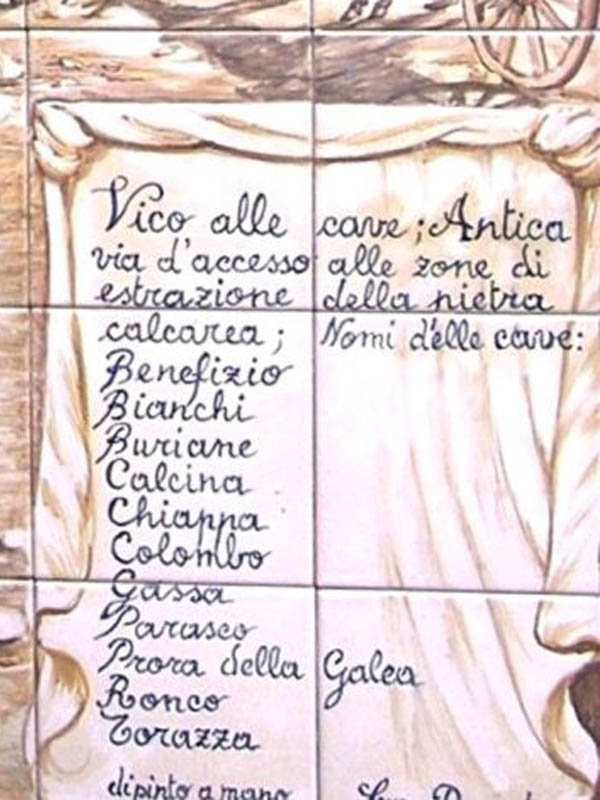 Vico alle cave; Antica
via d'accesso alle zone di
estrazione della pietra
calcarea; Nomi d'elle cave:
Benefizio
Bianchi
Buriane
Calcina
Chiappa
Colombo
Gassa
Parasco
Prora della Galea
Ronco
Torazza
dipinto a mano